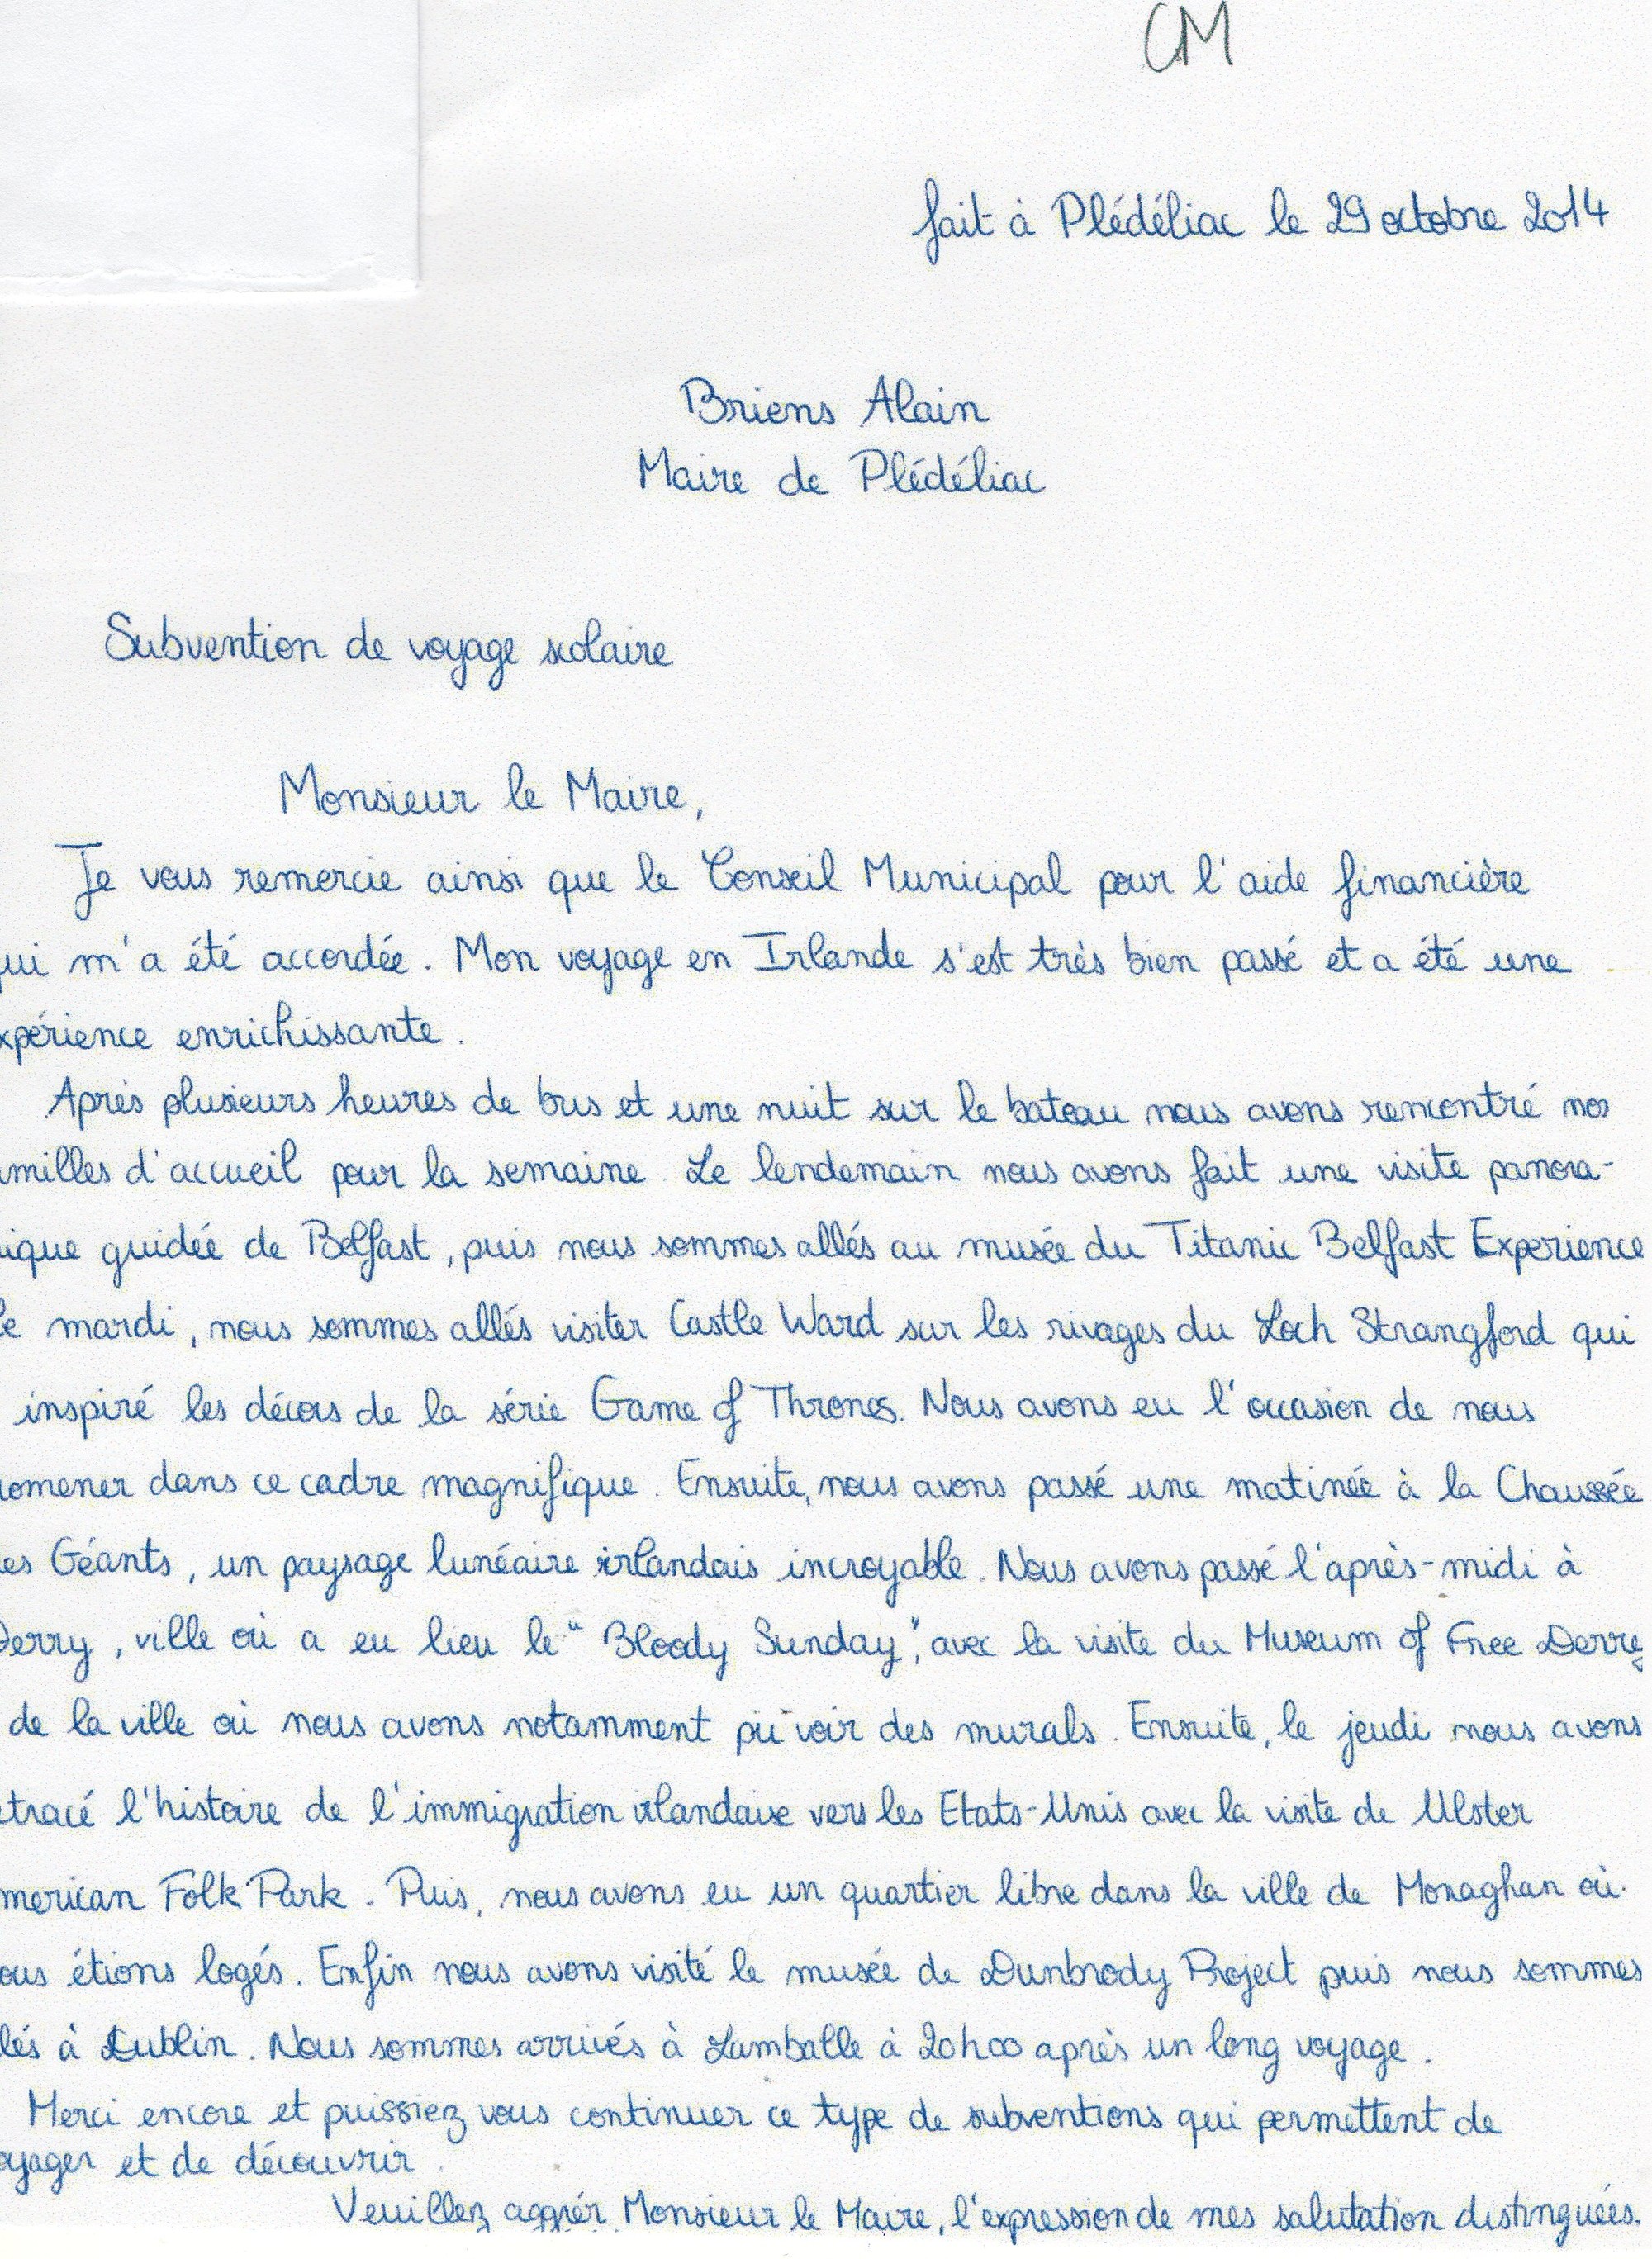 CM
fait à Plédéliac le 29 octobre 2014
Briens Alain
Maire de Plédéliac
Subvention de voyage scolaire
Monsieur le Maire,
Je vous remercie ainsi que le Conseil Municipal pour l'aide financière
ui m'a été accordée. Mon voyage en Irlande s'est très bien passé et a été une
xpérience enrichissante.
Après plusieurs heures de bus et une nuit sur le bateau nous avons rencontré nos
milles d'accueil pour la semaine. Le lendemain nous avons fait une visite panora-
ique guidée de Belfast, puis nous sommes allés au musée du Titanic Belfast Experience
le mardi, nous sommes allés visiter Castle Ward sur les rivages du Loch Strangford qui
inspiré les décors de la série Game of Thrones. Nous avons eu l'occasion de nous
romener dans ce cadre magnifique. Ensuite, nous avons passé une matinée à la Chaussée
es Géants, un paysage lunéaire irlandais incroyable. Nous avons passé l'après-midi à
Derry, ville où a eu lieu le "Bloody Sunday", avec la visite du Museum of Free Derry
de la ville où nous avons notamment pû voir des murals. Ensuite, le jeudi nous avons
etracé l'histoire de l'immigration irlandaise vers les Etats-Unis avec la visite de Ulster
merican Folk Park. Puis, nous avons eu un quartier libre dans la ville de Monaghan où
ous étions logés. Enfin nous avons visité le musée de Dunbrody Project puis nous sommes
lés à Dublin. Nous sommes arrivés à Lamballe à 20h00 après un long voyage.
Merci encore et puissiez vous continuer ce type de subventions qui permettent de
oyager et de découvrir.
Veuillez agréer Monsieur le Maire, l'expression de mes salutation distinguées.